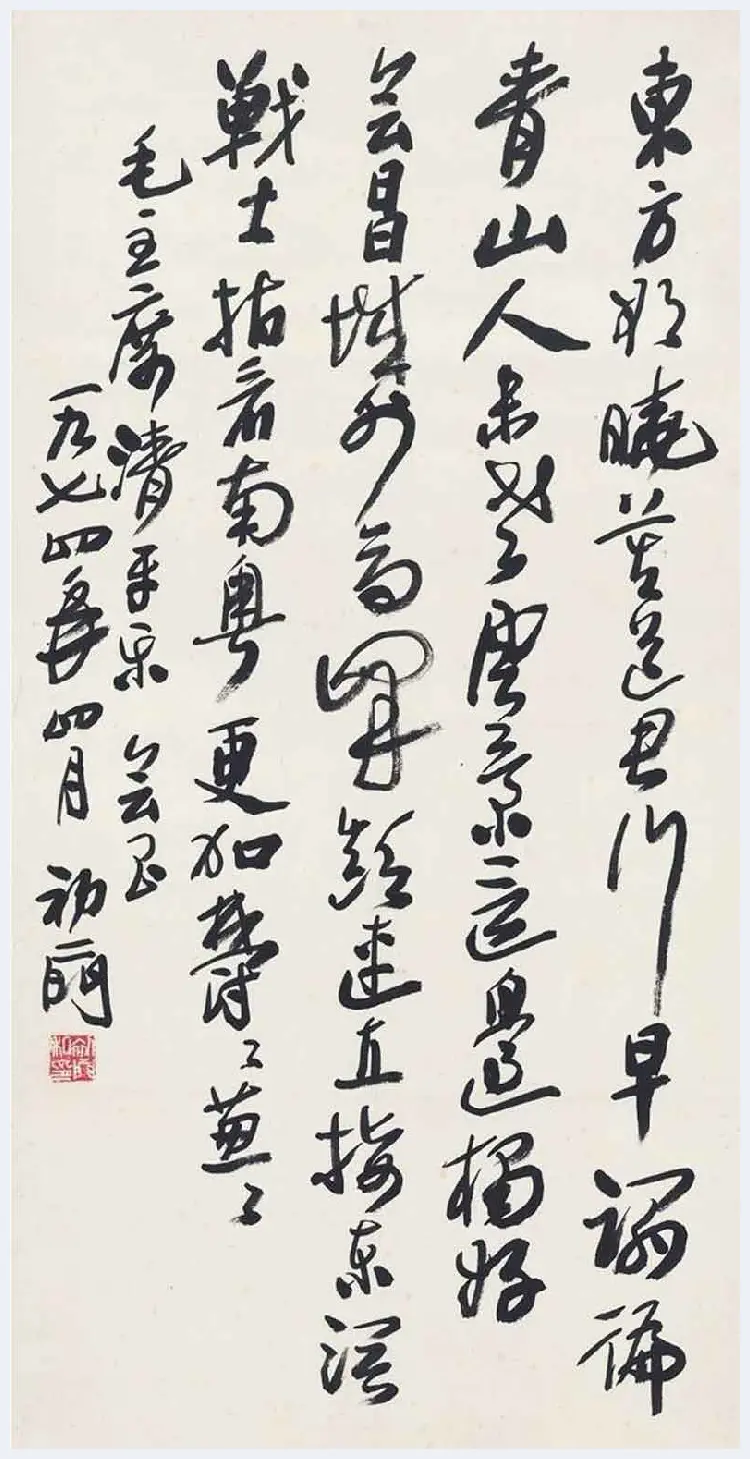 東方欲曉莫道君行早踏徧
青山人未老風景這邊獨好
会昌城外高峰顛連直接东溟
戰士指看南粤更加鬱〻葱〻
毛主席清平乐 会昌
一九七四年四月